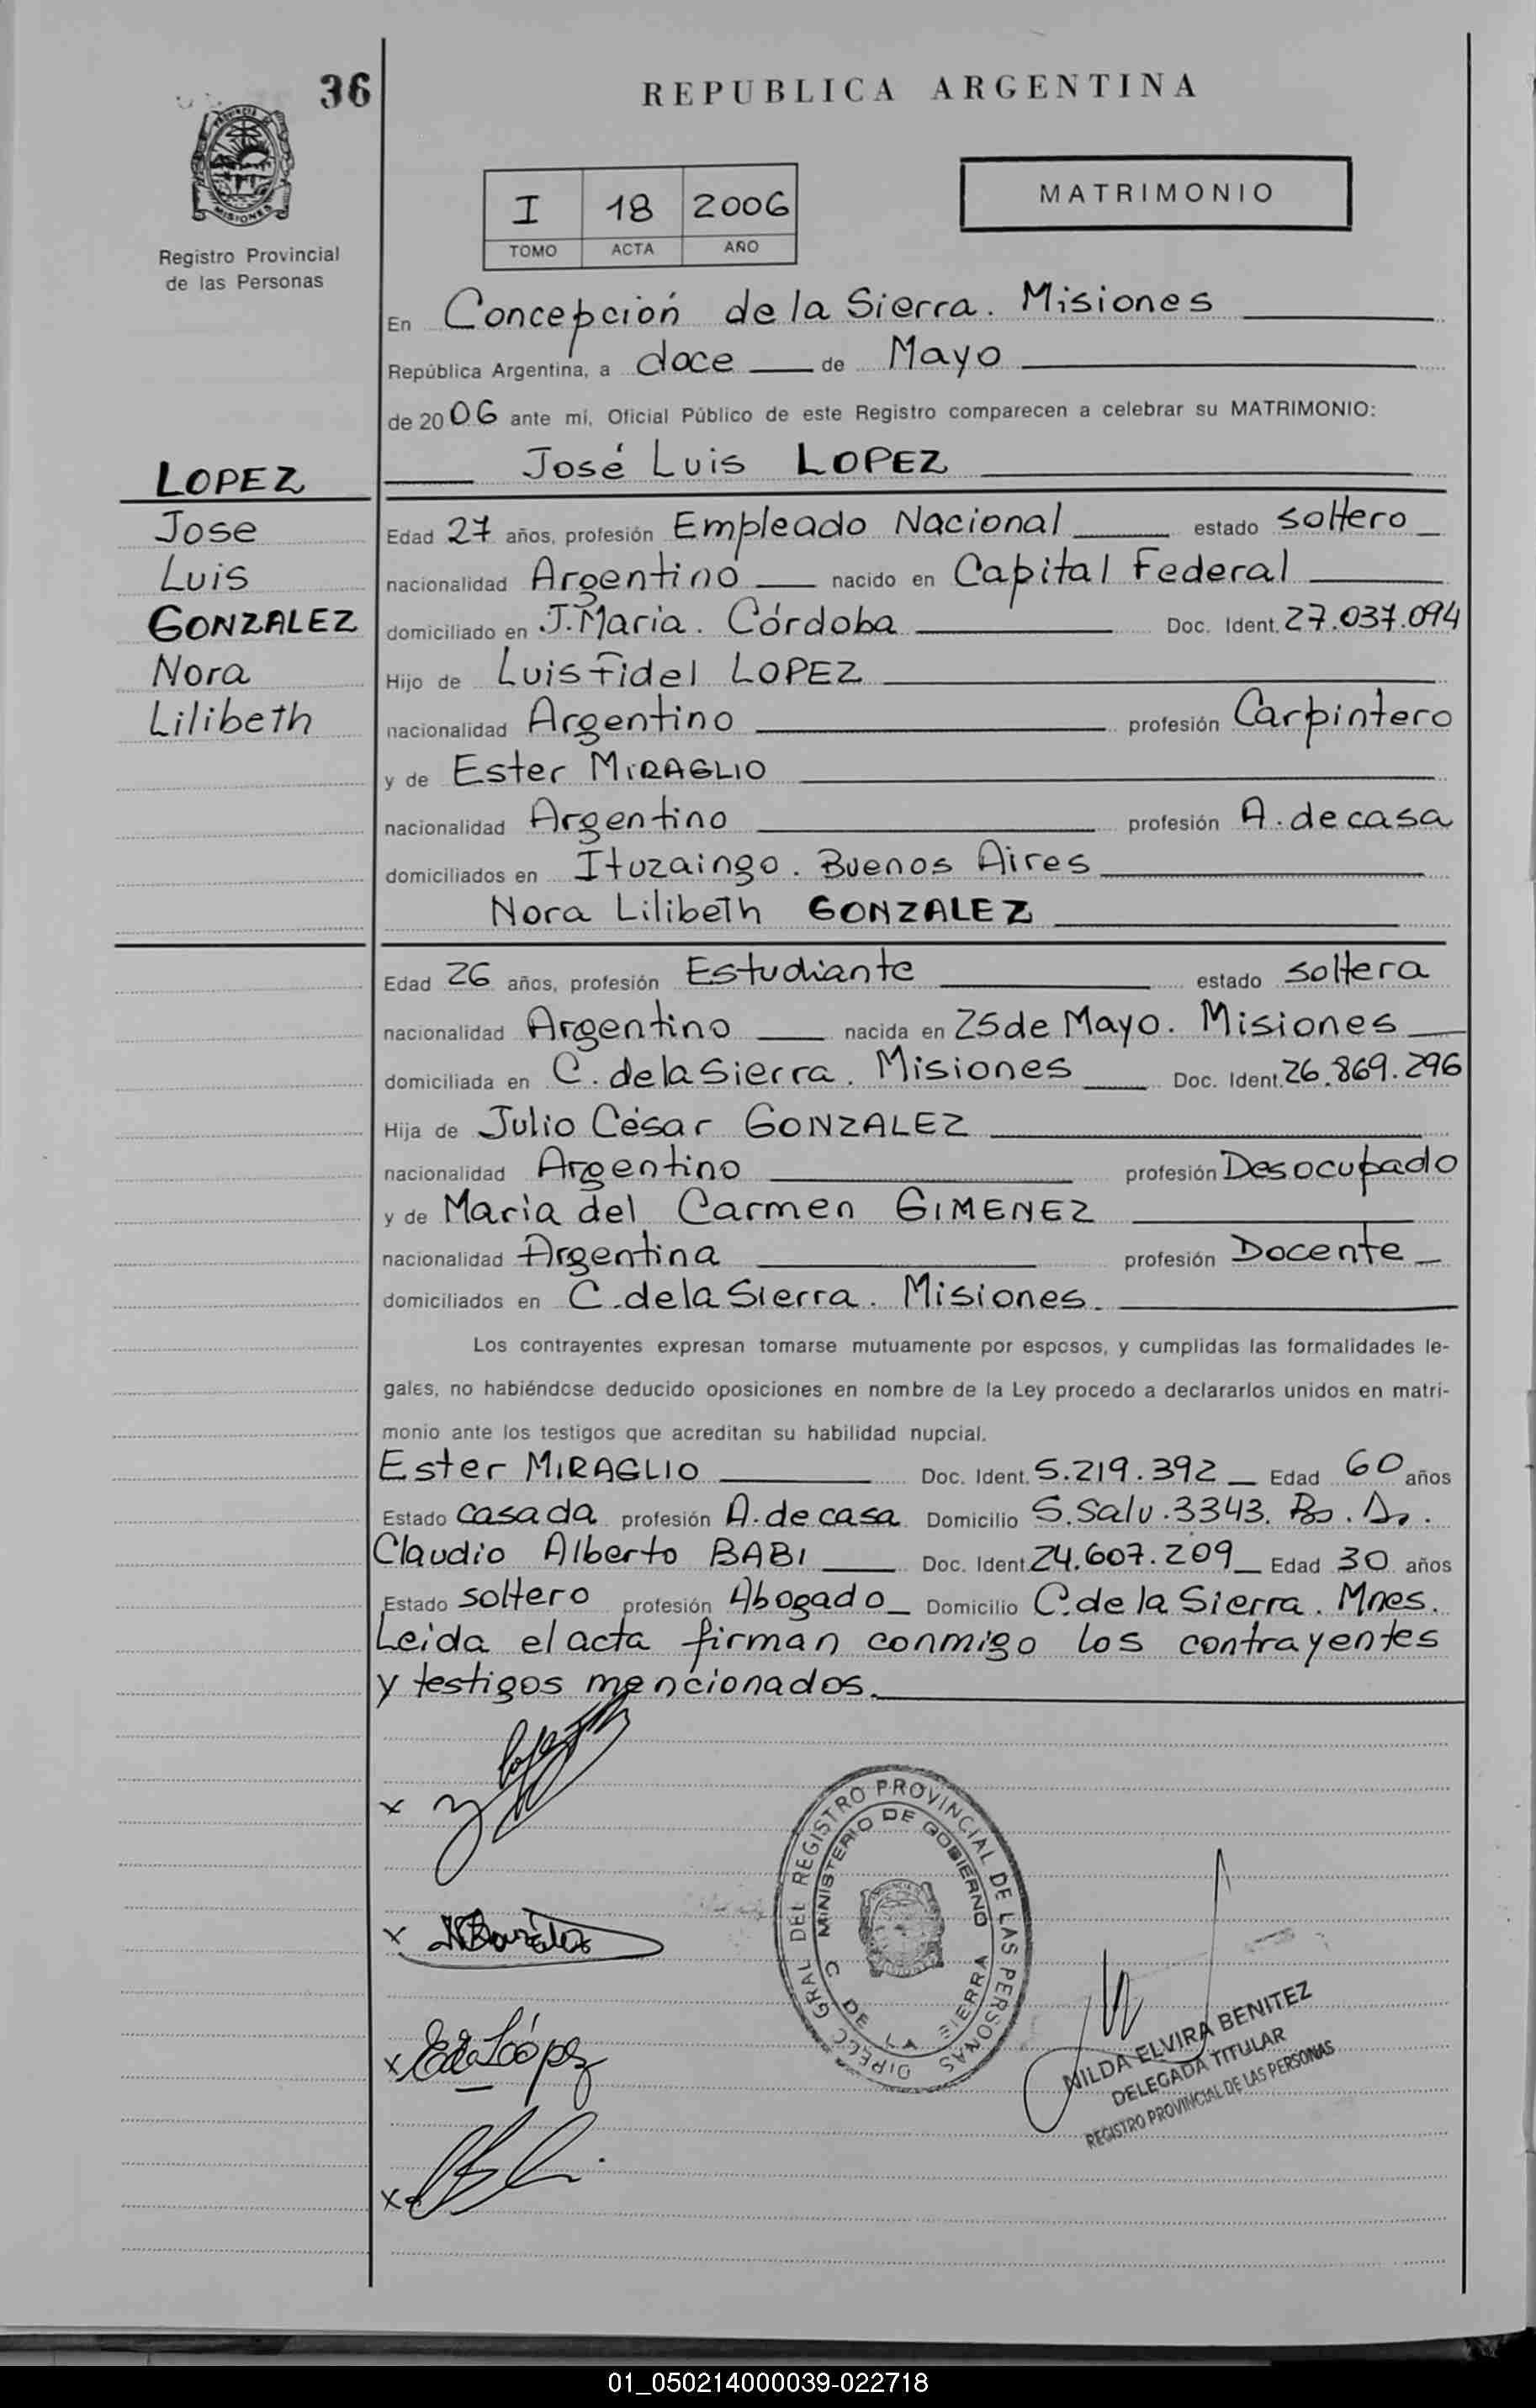 36
REPUBLICA ARGENTINA
PROVINCIA DE
MISIONES
Registro Provincial
de las Personas
I 18 2006
TOMO ACTA AÑO
MATRIMONIO
En Concepción de la Sierra. Misiones
República Argentina, a doce de Mayo
de 2006 ante mí, Oficial Público de este Registro comparecen a celebrar su MATRIMONIO:
LOPEZ
José Luis LOPEZ
Jose
Edad 27 años, profesión Empleado Nacional estado soltero
Luis
nacionalidad Argentino nacido en Capital Federal
GONZALEZ
domiciliado en J. Maria. Córdoba Doc. Ident. 27.037.094
Nora
Hijo de Luis Fidel LOPEZ
Lilibeth
nacionalidad Argentino profesión Carpintero
y de Ester MIRAGLIO
nacionalidad Argentino profesión A. de casa
domiciliados en Ituzaingo. Buenos Aires
Nora Lilibeth GONZALEZ
Edad 26 años, profesión Estudiante estado soltera
nacionalidad Argentino nacida en 25 de Mayo. Misiones
domiciliada en C. de la Sierra. Misiones Doc. Ident. 26.869.296
Hija de Julio César GONZALEZ
nacionalidad Argentino profesión Desocupado
y de Maria del Carmen GIMENEZ
nacionalidad Argentina profesión Docente
domiciliados en C. de la Sierra. Misiones.
Los contrayentes expresan tomarse mutuamente por esposos, y cumplidas las formalidades le-
gales, no habiéndose deducido oposiciones en nombre de la Ley procedo a declararlos unidos en matri-
monio ante los testigos que acreditan su habilidad nupcial.
Ester MIRAGLIO Doc. Ident. 5.219.392 Edad 60 años
Estado casada profesión A. de casa Domicilio S. Salv. 3343. Bs. As.
Claudio Alberto BABI Doc. Ident. 24.607.209 Edad 30 años
Estado soltero profesión Abogado Domicilio C. de la Sierra. Mnes.
Leida el acta firman conmigo los contrayentes
y testigos mencionados.
x
x
x López
x
GRAL DEL REGISTRO PROVINCIAL DE LAS PERSONAS
MINISTERIO DE GOBIERNO
C DE LA SIERRA
NILDA ELVIRA BENITEZ
DELEGADA TITULAR
REGISTRO PROVINCIAL DE LAS PERSONAS
01_050214000039-022718